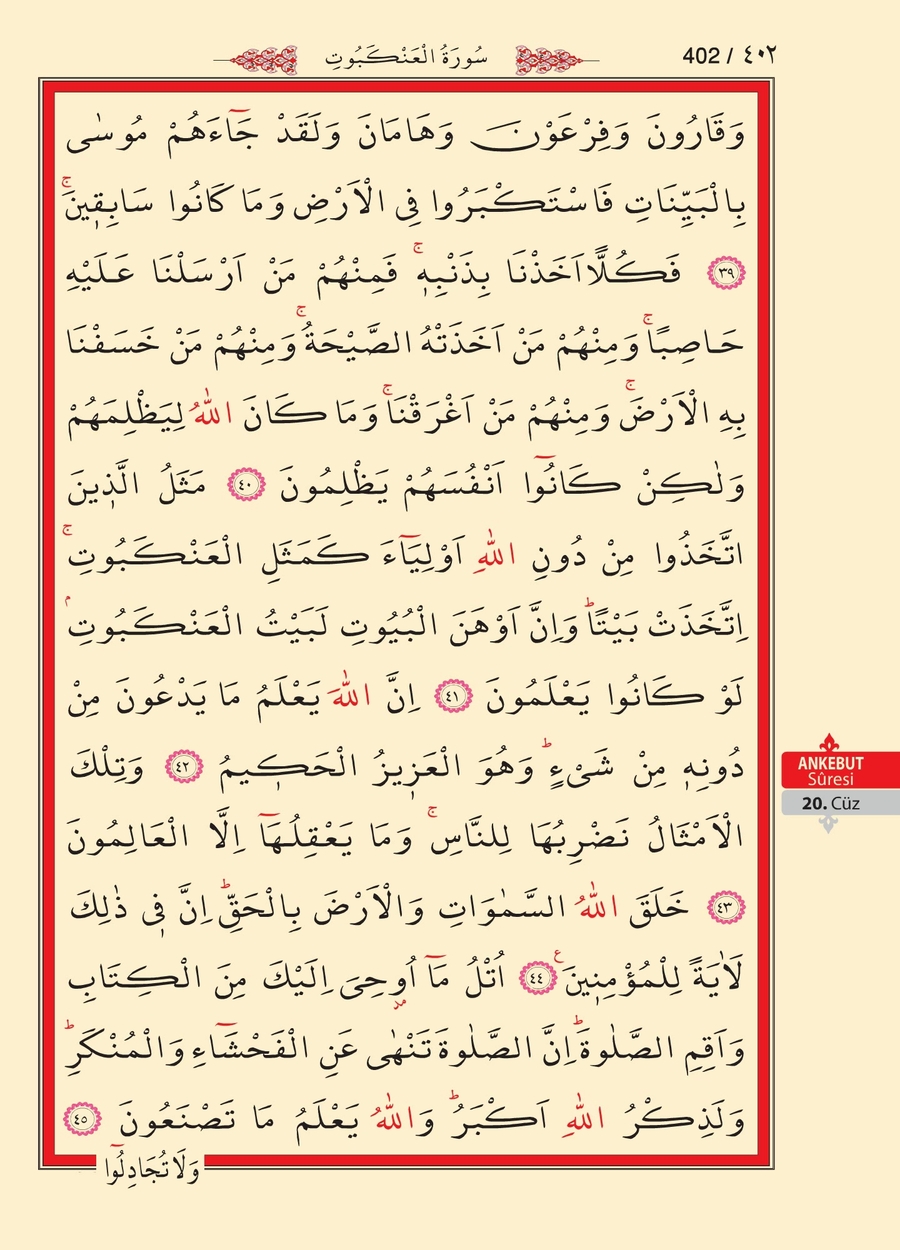 سُورَةُ الْعَنْكَبُوتِ
402 / ٤٠٢
وَقَارُونَ وَفِرْعَوْنَ وَهَامَانَ وَلَقَدْ جَٓاءَهُمْ مُوسٰى
بِالْبَيِّنَاتِ فَاسْتَكْبَرُوا فِى الْاَرْضِ وَمَا كَانُوا سَابِقٖينَۚ
﴿٣٩﴾ فَكُلًّا اَخَذْنَا بِذَنْبِهٖۚ فَمِنْهُمْ مَنْ اَرْسَلْنَا عَلَيْهِ
حَاصِبًاۚ وَمِنْهُمْ مَنْ اَخَذَتْهُ الصَّيْحَةُۚ وَمِنْهُمْ مَنْ خَسَفْنَا
بِهِ الْاَرْضَۚ وَمِنْهُمْ مَنْ اَغْرَقْنَاۚ وَمَا كَانَ اللّٰهُ لِيَظْلِمَهُمْ
وَلٰكِنْ كَانُٓوا اَنْفُسَهُمْ يَظْلِمُونَ ﴿٤٠﴾ مَثَلُ الَّذٖينَ
اتَّخَذُوا مِنْ دُونِ اللّٰهِ اَوْلِيَٓاءَ كَمَثَلِ الْعَنْكَبُوتِۚ
اِتَّخَذَتْ بَيْتًاؕ وَاِنَّ اَوْهَنَ الْبُيُوتِ لَبَيْتُ الْعَنْكَبُوتِۢ
لَوْ كَانُوا يَعْلَمُونَ ﴿٤١﴾ اِنَّ اللّٰهَ يَعْلَمُ مَا يَدْعُونَ مِنْ
دُونِهٖ مِنْ شَىْءٍؕ وَهُوَ الْعَزٖيزُ الْحَكٖيمُ ﴿٤٢﴾ وَتِلْكَ
الْاَمْثَالُ نَضْرِبُهَا لِلنَّاسِۚ وَمَا يَعْقِلُهَٓا اِلَّا الْعَالِمُونَ
﴿٤٣﴾ خَلَقَ اللّٰهُ السَّمٰوَاتِ وَالْاَرْضَ بِالْحَقِّؕ اِنَّ فٖى ذٰلِكَ
لَاٰيَةً لِلْمُؤْمِنٖينَ ع ﴿٤٤﴾ اُتْلُ مَٓا اُوحِىَ اِلَيْكَ مِنَ الْكِتَابِ
وَاَقِمِ الصَّلٰوةَؕ اِنَّ الصَّلٰوةَ تَنْهٰى عَنِ الْفَحْشَٓاءِ وَالْمُنْكَرِؕ
وَلَذِكْرُ اللّٰهِ اَكْبَرُؕ وَاللّٰهُ يَعْلَمُ مَا تَصْنَعُونَ ﴿٤٥﴾
وَلَا تُجَادِلُٓوا
ANKEBUT
Sûresi
20. Cüz